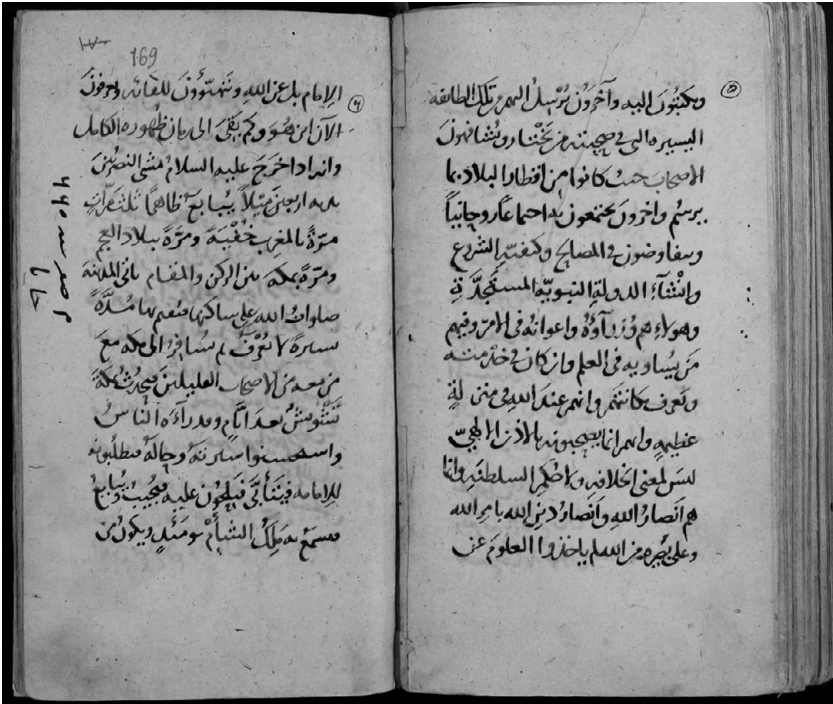 ٥
ويكتبون اليه وآخرون يُرْسِلُ اليهم من تلك الطائفه
اليسيره التي في صحبته من يختار ويشافهون
الاصحاب حيث كانوا من اقطار البلاد بما
يرسم واخرون يجتمعون به اجتماعًا روحانيًا
ويتفاوضون في المصالح وكيفيّة الشروع
وانشآء الدولة النبويّة المستجدّة
وهولاء هم وزرآؤه واعوانه في الامر وفيهم
من يُساويه في العلم وان كان في خدمته
وتعرف مكانتهم وانهم عند الله في منزلةٍ
عظيمةٍ وانهم انما يصحبونه بالاذن الالهيّ
ليس لمعنى الخلافه ولا حكم السلطنة وانما
هم انصارُ الله وانصارُ دين الله بامر الله
وعلى من الله لم ياخذوا العلوم عن
169
٦
الامام بل عن الله ويتهيّؤون للقائه ويعرفون
الآن اين هو وكم بقى الى زمان ظهوره الكامل
وانه اذا خرج عليه السلام مشى النصر بين
يديه اربعين ميلاً يبايع ظاهرًا ثلث مرّاتٍ
مرّةً بالمغرب خُفْيَةً ومرّةً ببلاد العجم
ومرّةً بمكه بين الركن والمقام ياتي المدينة
صلوات الله على ساكنها فيقيم بها مُدّةً
يسيرةً لا يُعْرَفُ ثم يُسافر الى مكه مع
من معه من الاصحاب القليلين فيحدثُ بمكة
تشويشٌ بعد ايّامٍ وقد راءه الناسُ
واستحسنوا سيرته وحاله فيطلبونه
للامامه فيتأبّى فيلحّون عليه فيجيبُ ويُبايعُ
فيسمع به ملك الشأم يومئذٍ ويكون من